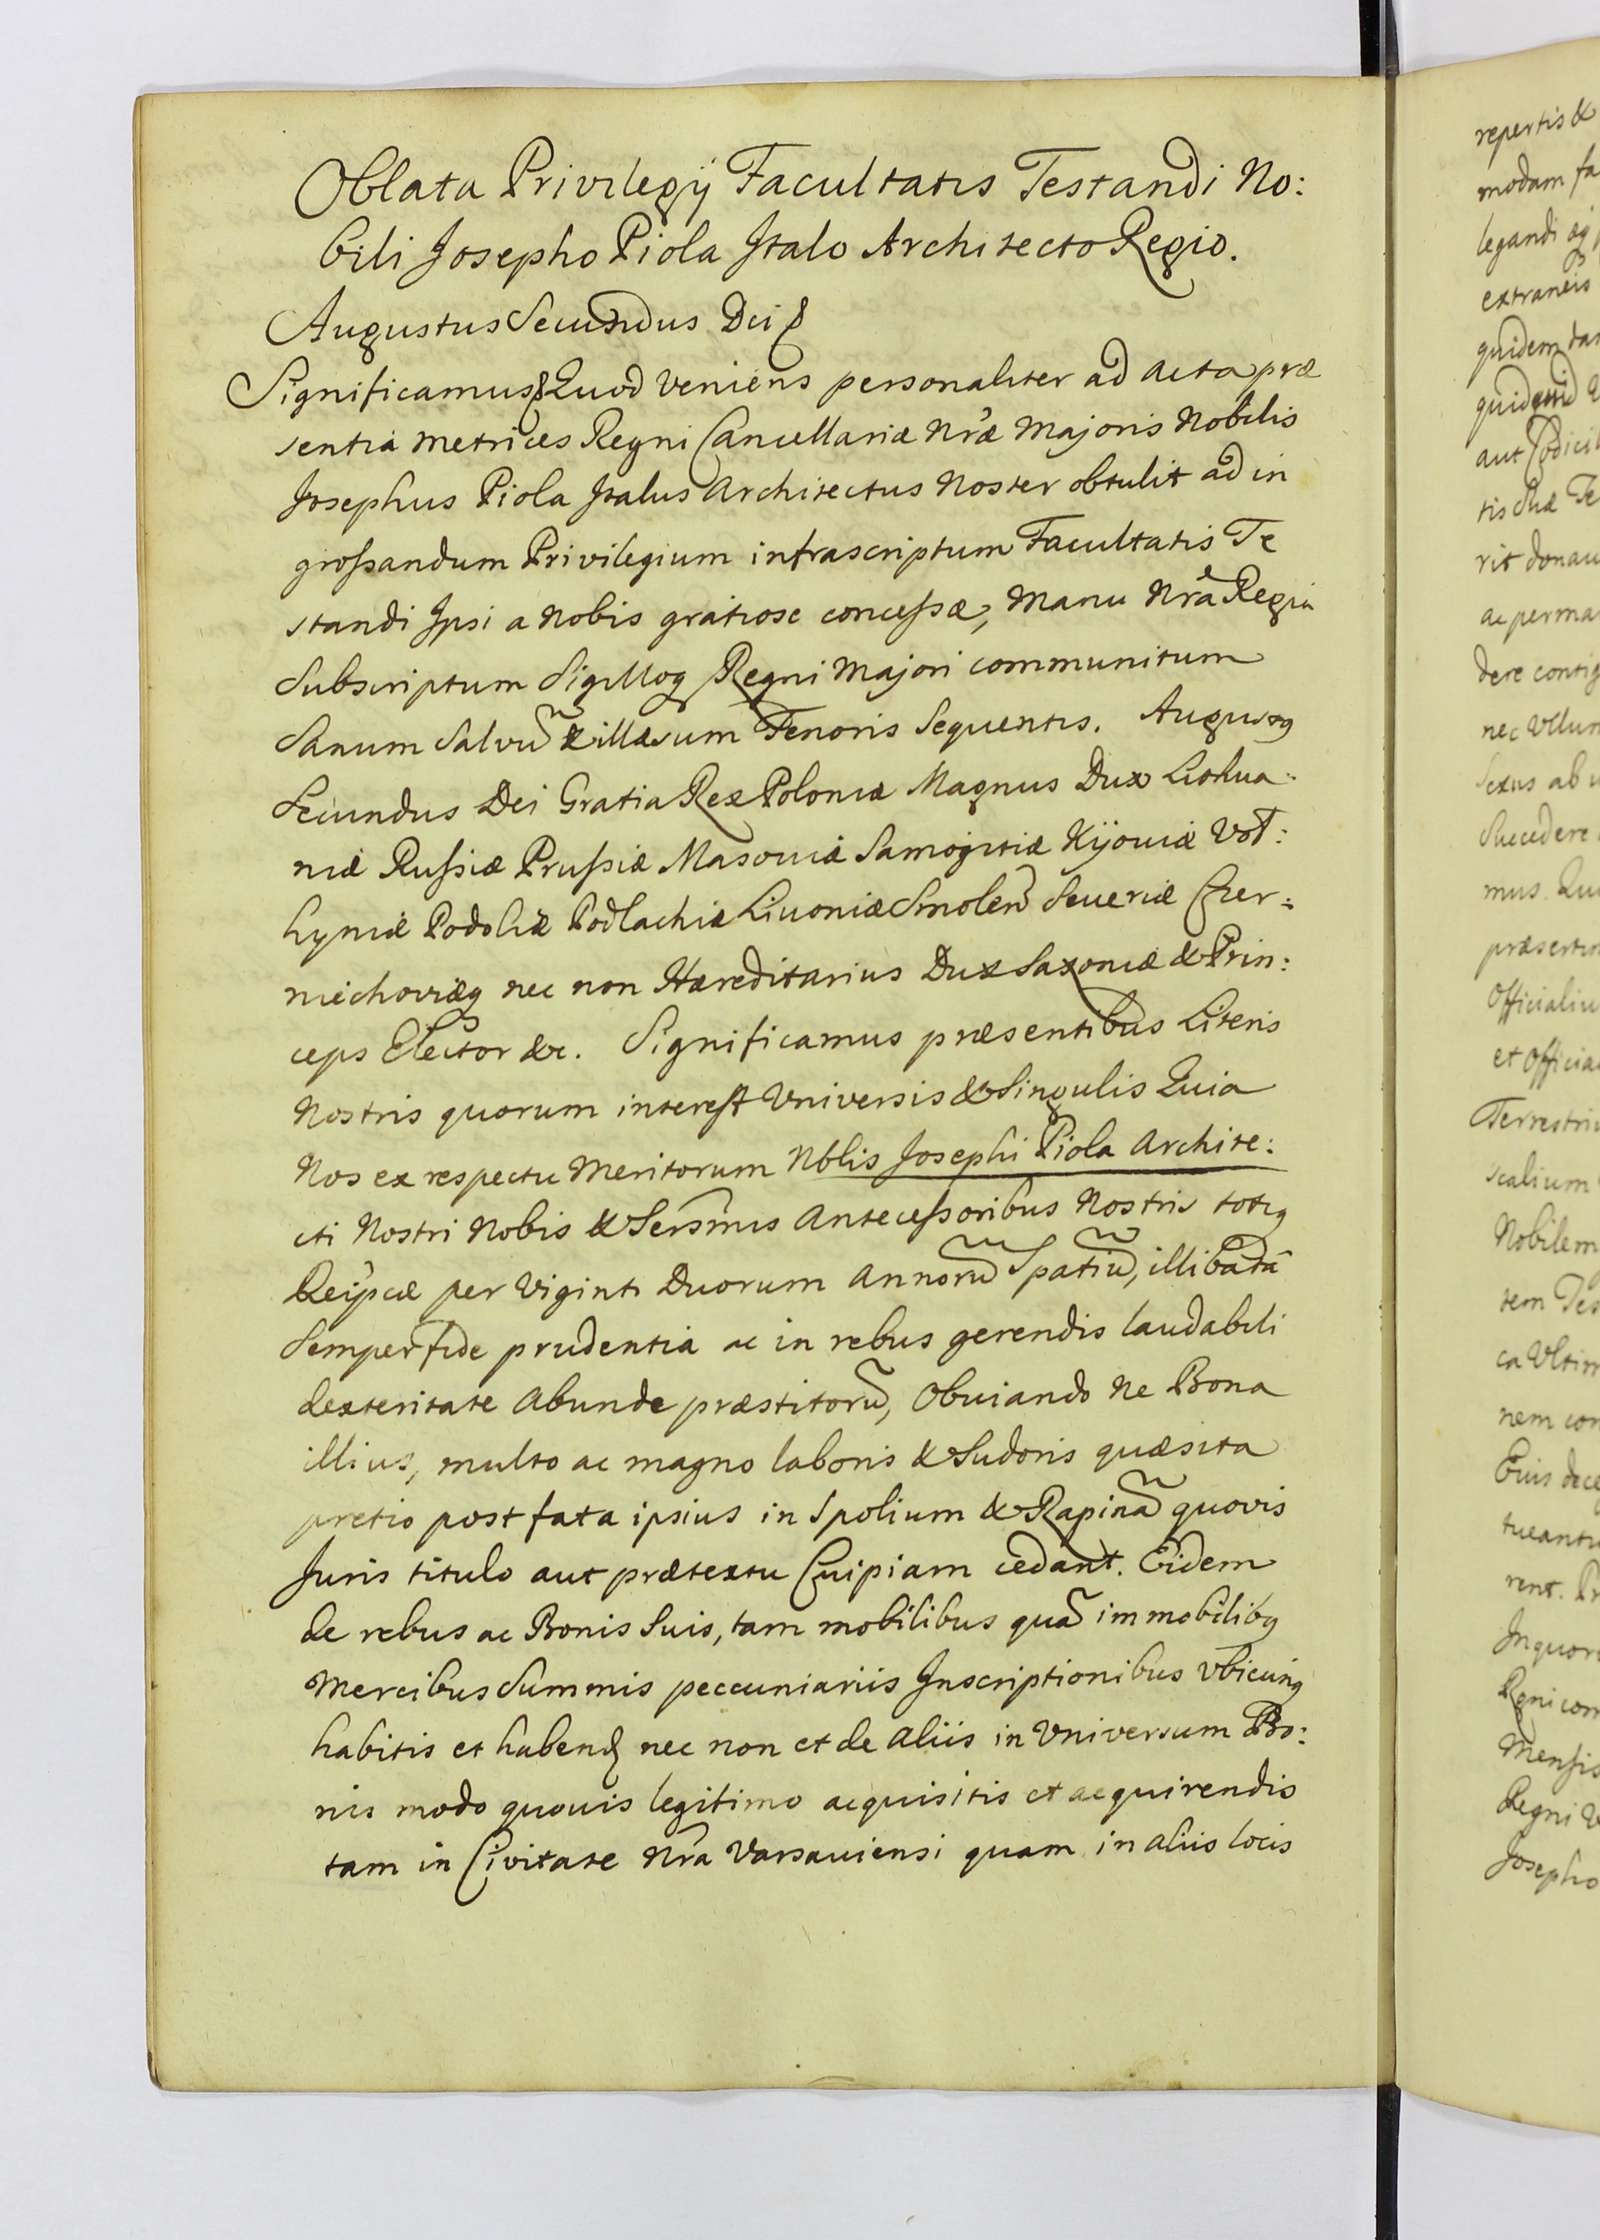 Oblata Privilegÿ Facultatis Testandi No:
bili Josepho Piola Italo Architecto Regio.
Augustus Secundus Dei
Significamus Quod veniens personaliter ad Acta præ
sentia metrices Regni Cancellariæ Nræ Majoris Nobilis
Josephus Piola Italus Architectus Noster obtulit ad in
großandum Privilegium infrascriptum Facultatis Te
standi Ipsi a Nobis gratiose conceßæ, Manu Nra Regia
Subscriptum Sigilloq Regni Majori communitum
Sanum Salvũ & illæsum Tenoris Sequentis. Augustq
Secundus Dei Gratia Rex Poloniæ Magnus Dux Lithua:
niæ Rußiæ Prußiæ Masoviæ Samogitiæ Kijoviæ Vol:
hyniæ Podoliæ Podlachiæ Livoniæ Smolen Seueriæ Czer:
niechoviæq nec non Hæreditarius Dux Saxoniæ & Prin:
ceps Elector &c. Significamus præsentibus Literis
Nostris quorum interest Vniversis & Singulis Quia
Nos ex respectu Meritorum Nblis Josephi Piola Archite:
cti Nostri Nobis & Sersmis Anteceßoribus Nostris totiq
Reipcæ per Viginti Duorum Annorũ Spatiũ, illibata
Semper fide prudentia ac in rebus gerendis laudabili
dexteritate Abunde præstitorũ, Obuiando Ne Bona
illius, multo ac magno laboris & Sudoris quæsita
pretio post fata ipsius in Spolium & Rapinã quovis
Juris titulo aut prætextu Cuipiam cedant. Eidem
de rebus ac Bonis Suis, tam mobilibus quã immobilibq
Mercibus Summis peccuniariis Inscriptionibus Vbicunq
habitis et habend nec non et de Aliis in Vniversum Bo:
nis modo quouis legitimo acquisitis et acquirendis
tam in Civitate Nra Varsauiensi quam in aliis locis
repertis &
modam fa
legandi
extraneis
quidem
aut Codicil
tis Suæ Te
rit donau
ac perma
dere contig
nec Vllum
Sexus ab
Succedere
mus. Qu
præsertim
Officialiu
et Officia
Terrestri
scalium
Nobilem
tem Tes
ca Vltim
nem con
Eius dece
tueantu
rent. Pr
In quoru
Regni com
Mensis
Regni
Josepho